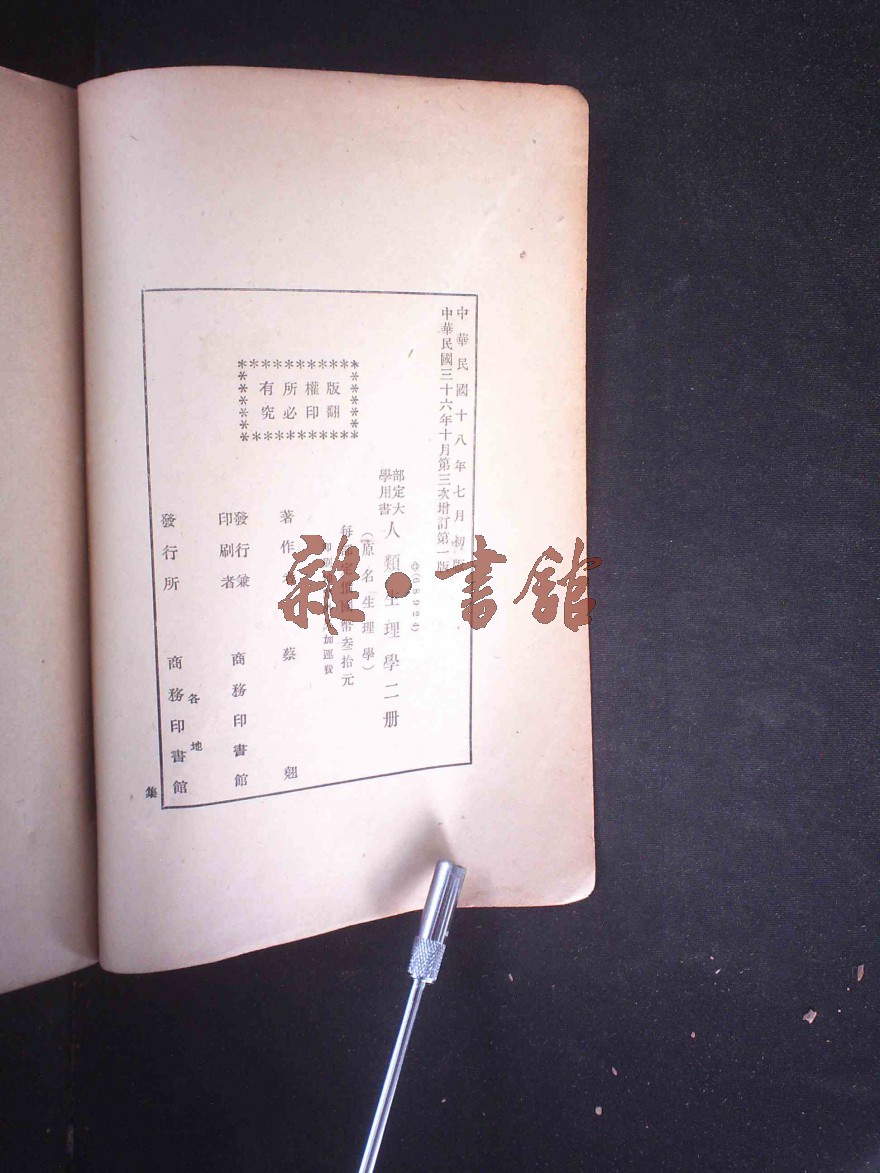 中華民國十八年七月初版
中華民國三十六年十月第三次增訂第一版
部定大
學用書
人類生理學二册
(原名生理學)
每部定價國幣叁拾元
加運費
版權所有
翻印必究
著作者 蔡翹
發行兼
印刷者
商務印書館
發行所
各地
商務印書館
集
雜·書館